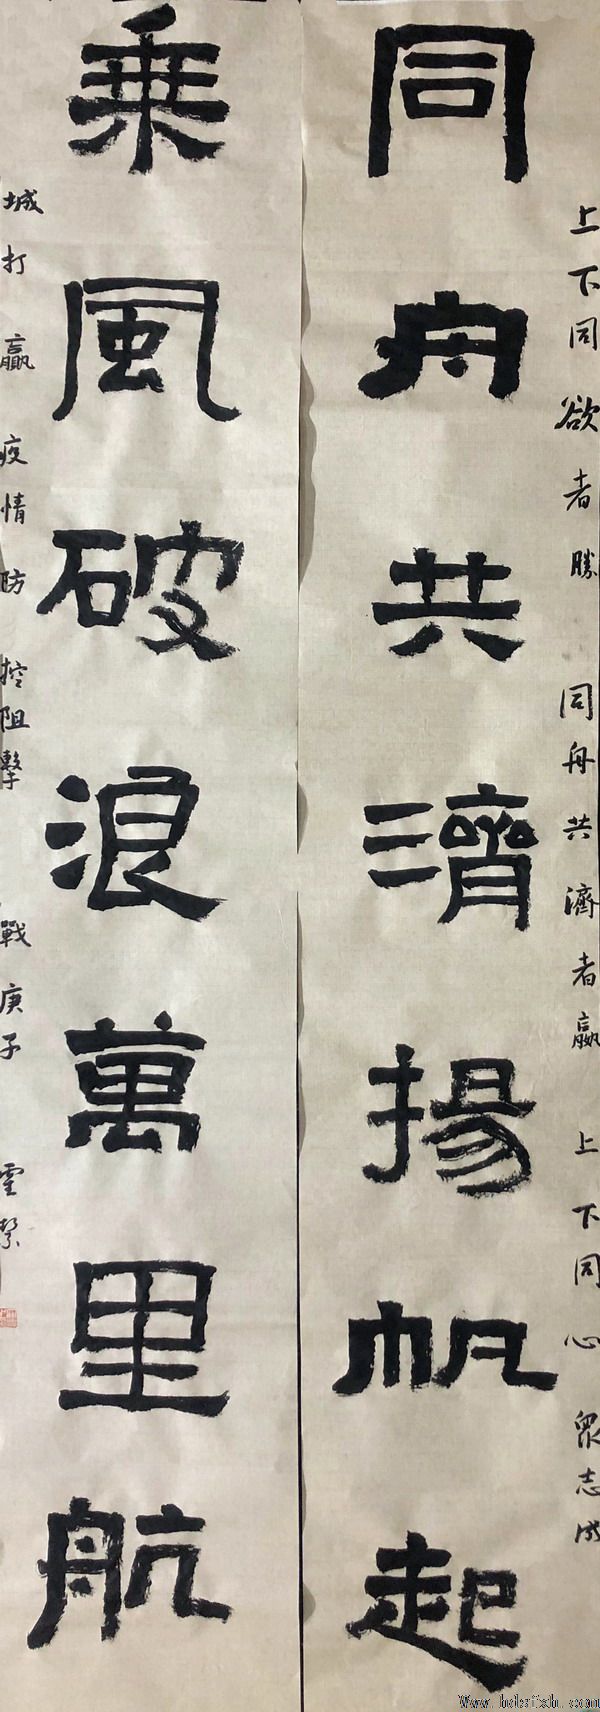 同舟共濟揚帆起
乘風破浪萬里航
上下同欲者勝 同舟共濟者贏 上下同心 眾志成
城打贏疫情防控阻擊戰庚子 霍絜
Www.hdsfxh.com